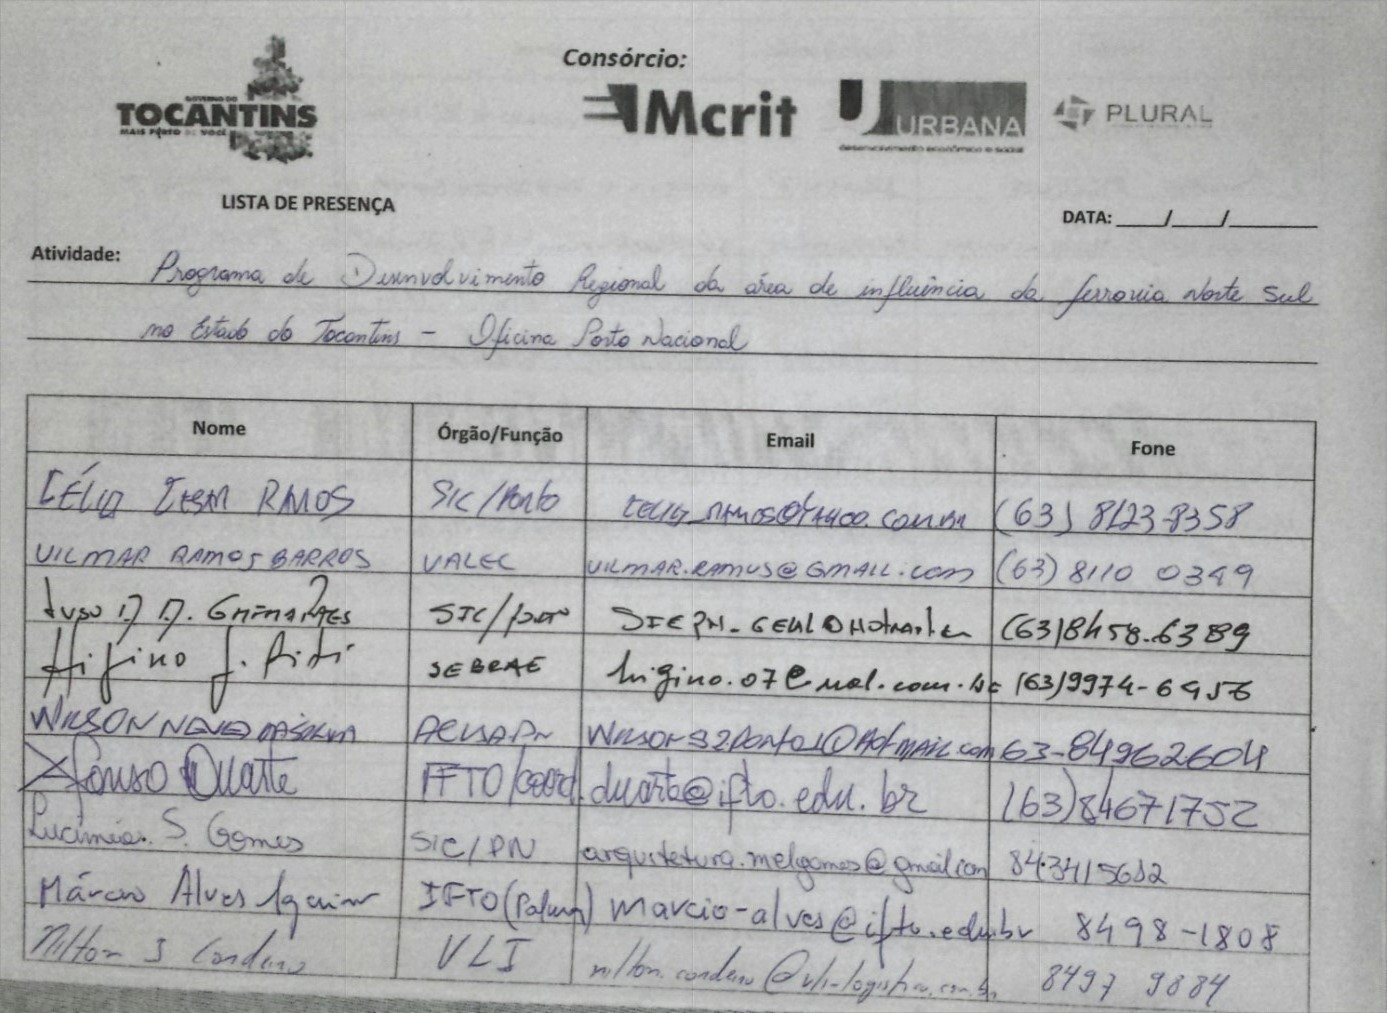 GOVERNO DO
TOCANTINS
MAIS PERTO DE VOCÊ
Consórcio:
Mcrit
URBANA
desenvolvimento econômico e social
PLURAL
LISTA DE PRESENÇA
DATA: ____/____/________
Atividade: Programa de Desenvolvimento Regional da área de influência da ferrovia Norte Sul
no Estado do Tocantins - Oficina Porto Nacional
Nome Órgão/Função Email Fone
CÉLIO RAMOS SIC/Porto (63) 8123-8358
VILMAR RAMOS BARROS VALEC VILMAR.RAMOS@GMAIL.com (63) 8110 0349
GUIMARÃES SIC/ (63)8458-6389
Higino J. SEBRAE (63)9974-6956
WILSON 63-84962604
Afonso Duarte IFTO/coord. duarte@ifto.edu.br (63)84671752
S. Gomes SIC/PN arquitetura.melgomes@gmail.com 843415682
Márcio Alves Aguiar IFTO(Palmas) marcio-alves@ifto.edu.br 8498-1808
Nilton S Cordeiro VLI nilton.cordeiro@vli-logistica.com.br 8497 9884